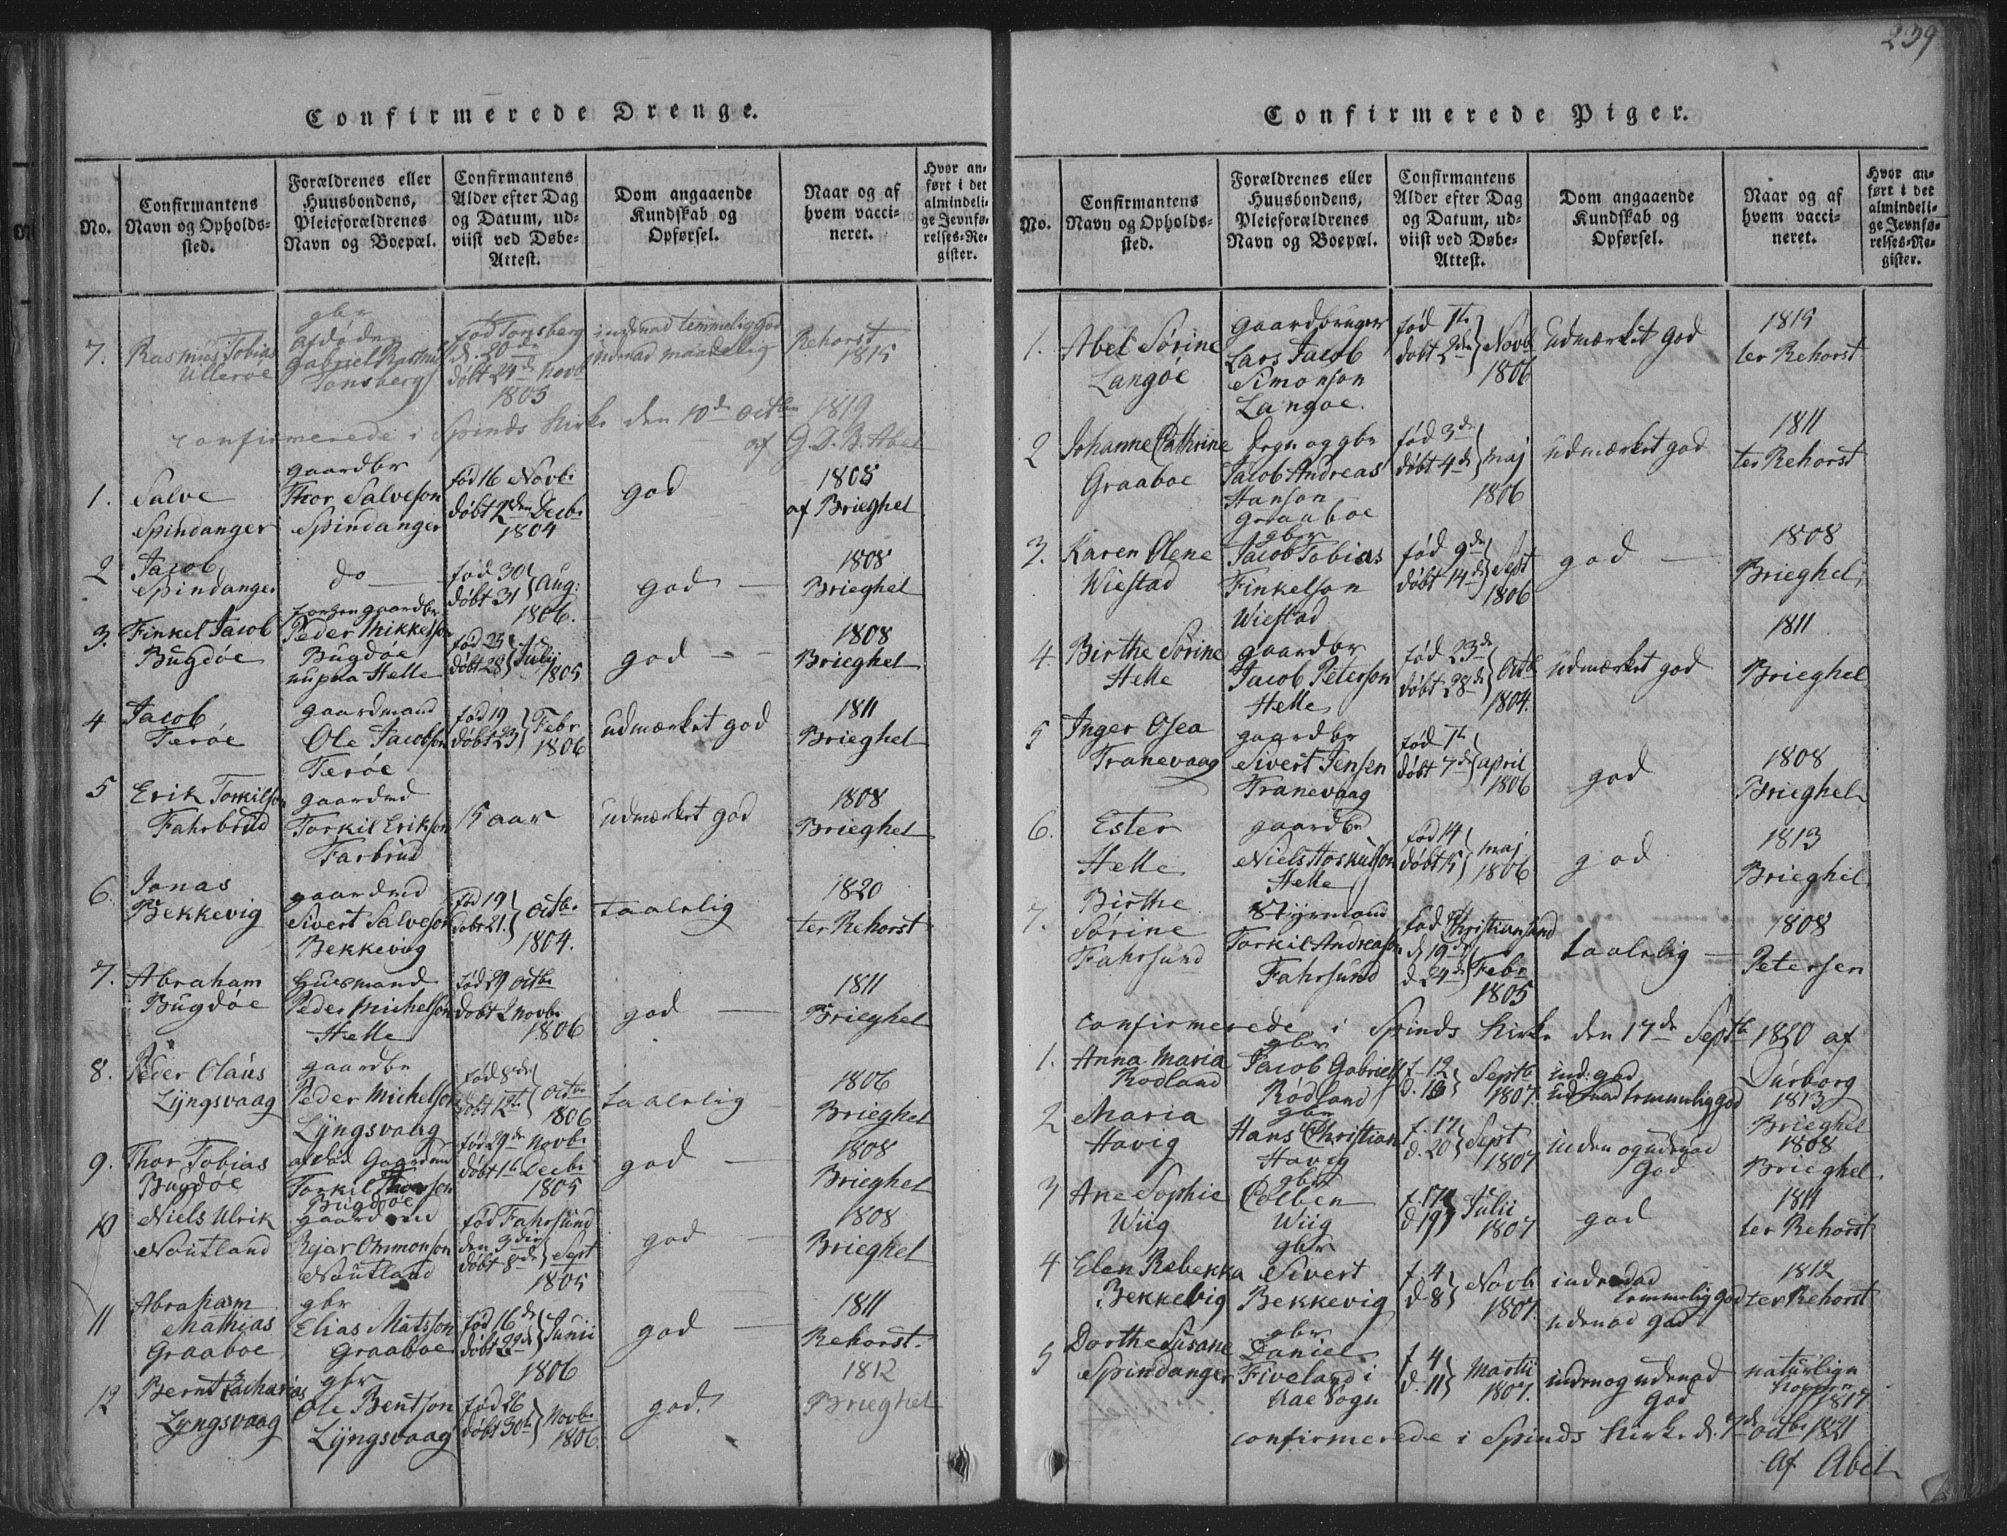 239
Confirmerede Drenge.
No.
Confirmantens
Navn og Opholds-
sted.
Forældrenes eller
Huusbondens,
Pleieforældrenes
Navn og Boepæl.
Confirmantens
Alder efter Dag
og Datum, ud-
viist ved Døbe-
Attest.
Dom angaaende
Kundskab og
Opførsel.
Naar og af
hvem vacci-
neret.
Hvor an-
ført i det
almindeli-
ge Jevnfø-
relses-Re-
gister.
7. Rasmus Tobias
Ullerøe
gbr
afdøde
Gabriel Rasmus
Tonsberg
fød Tonsberg
d. 20de
døbt 24de Novb
1803
indenad temmelig god
udenad maadelig
Rehorst
1815
confirmerede i Spinds Kirke den 10de Octbr 1819
af G. D. B. Abel
1. Salve
Spindanger
gaardbr
Thor Salveson
Spindanger
fød 16 Novb:
døbt 2den Decb:
1804
god
1805
af Brieghel
2 Jacob
Spindanger
do
fød 30
døbt 31 Aug:
1806.
god
1808
Brieghel
3. Finkel Jacob
Bugdøe
gaardbr
Peder Mikkelson
Bugdøe
Helle
fød 25
døbt 28 Julij
1805
god
1808
Brieghel
4 Jacob
Terøe
gaardmand
Ole Jacobson
Terøe
fød 19
døbt 23 Febr
1806
udmærket god
1811
Brieghel
5 Erik Torkilson
Fahrbrud
gaardmd
Torkil Erikson
Farbrud
15 aar
udmærket god
1808
Brieghel
6. Jonas
Bekkevig
gaardmd
Sivert Salveson
Bekkevig
fød 19
døbt 21. Octbr
1804.
taalelig
1820
ter Rehorst
7. Abraham
Bugdøe
Huusmand
Peder Michelson
Helle
fød 29 Octbr
døbt 2 Novbr
1806
god
1811
Brieghel
8. Peder Olaus
Lyngsvaag
gaardbr
Peder Michelson
Lyngsvaag
fød 8de
døbt 12te Octbr
1806
taalelig
1806
Brieghel
9. Thor Tobias
Bugdøe
afdød Gaardmd
Torkil Thorsen
Bugdøe
fød 29de Novbr
døbt 1te Decbr
1805
god
1808
Brieghel
10 Niels Ulrik
Noutland
gaardmd
Rejar Ommonson
Noutland
fød Fahrsund
den 3die
døbt 8de Sept
1805
god
1808
Brieghel
11 Abraham
Mathias
Graaboe
gbr
Elias Matsson
Graaboe
fød 16de
døbt 22de Junii
1806
god
1811
Rehorst.
12 Bernt Zacharias
Lyngsvaag
gbr
Ole Bentson
Lyngsvaag
fød 26
døbt 30te Novbr
1806.
god.
1812
Brieghel
Confirmerede Piger.
No.
Confirmantens
Navn og Opholds-
sted.
Forældrenes eller
Huusbondens,
Pleieforældrenes
Navn og Boepæl.
Confirmantens
Alder efter Dag
og Datum, ud-
viist ved Døbe-
Attest.
Dom angaaende
Kundskab og
Opførsel.
Naar og af
hvem vacci-
neret.
Hvor an-
ført i det
almindeli-
ge Jevnfø-
relses-Re-
gister.
1. Abel Sørine
Langøe
Gaardbruger
Lars Jacob
Simonson
Langøe.
fød 1te
døbt 2de Novb
1806
udmærket god
1815
ter Rehorst
2 Johanne Cathrine
Graaboe
gbr
Jacob Andreas
Hanson
Graaboe
fød 3de
døbt 4de maj
1806
udmærket god
1811
ter Rehorst
3. Karen Olene
Wiestad
gbr
Jacob Tobias
Finkelson
Wiestad
fød 9de
døbt 14de Sept
1806
god
1808
Brieghel
4 Birthe Sørine
Helle
gaardbr
Jacob Peterson
Helle
fød 23de
døbt 28de Octb
1804.
udmærket god
1811
Brieghel
5 Inger Osea
Tranevaag
gaardbr
Sivert Jensen
Tranevaag
fød 1te
døbt 7de april
1806
god
1808
Brieghel
6. Ester
Helle
gaardbr
Niels Hoskulson
Helle
fød 14
døbt 15 maj
1806
god
1813
Brieghel
7. Birthe
Sørine
Fahrsund
Styrmand
Torkil Andreason
Fahrsund
fød Christiansand
d 19de
d. 24de Febr
1805
taalelig
1808
Petersen
confirmerede i Spinds Kirke den 17de Septb 1820 af
Durborg
1. Anna Maria
Rødland
gbr
Jacob Gabriels
Rødland
f. 12
d. 13 Septb
1807
ind: god
udenad temmelig god
1813
Brieghel
2 Maria
Havig
gbr
Hans Christian
Havig
f. 17
d. 20 Sept
1807
inden og udenad
God
1808
Brieghel
3 Ane Sophie
Wiig
gbr
Colben
Wiig
f. 17
d 19 Julii
1807
god
1811
ter Rehorst
4 Elen Rebekka
Bekkevig
gbr
Sivert
Bekkevig
f. 4
d. 8 Novb
1807.
indenad
temmelig god
udenad god
1812
ter Rehorst
5 Dorthe Susane
Spindanger
gbr
Daniel
Fiveland i
Aae Sogn
f. 4
d. 11 Martii
1807.
inden og udenad
God
naturlige
Kopper
1817
confirmerede i Spinds Kirke d. 7de octbr 1821
Af Abel